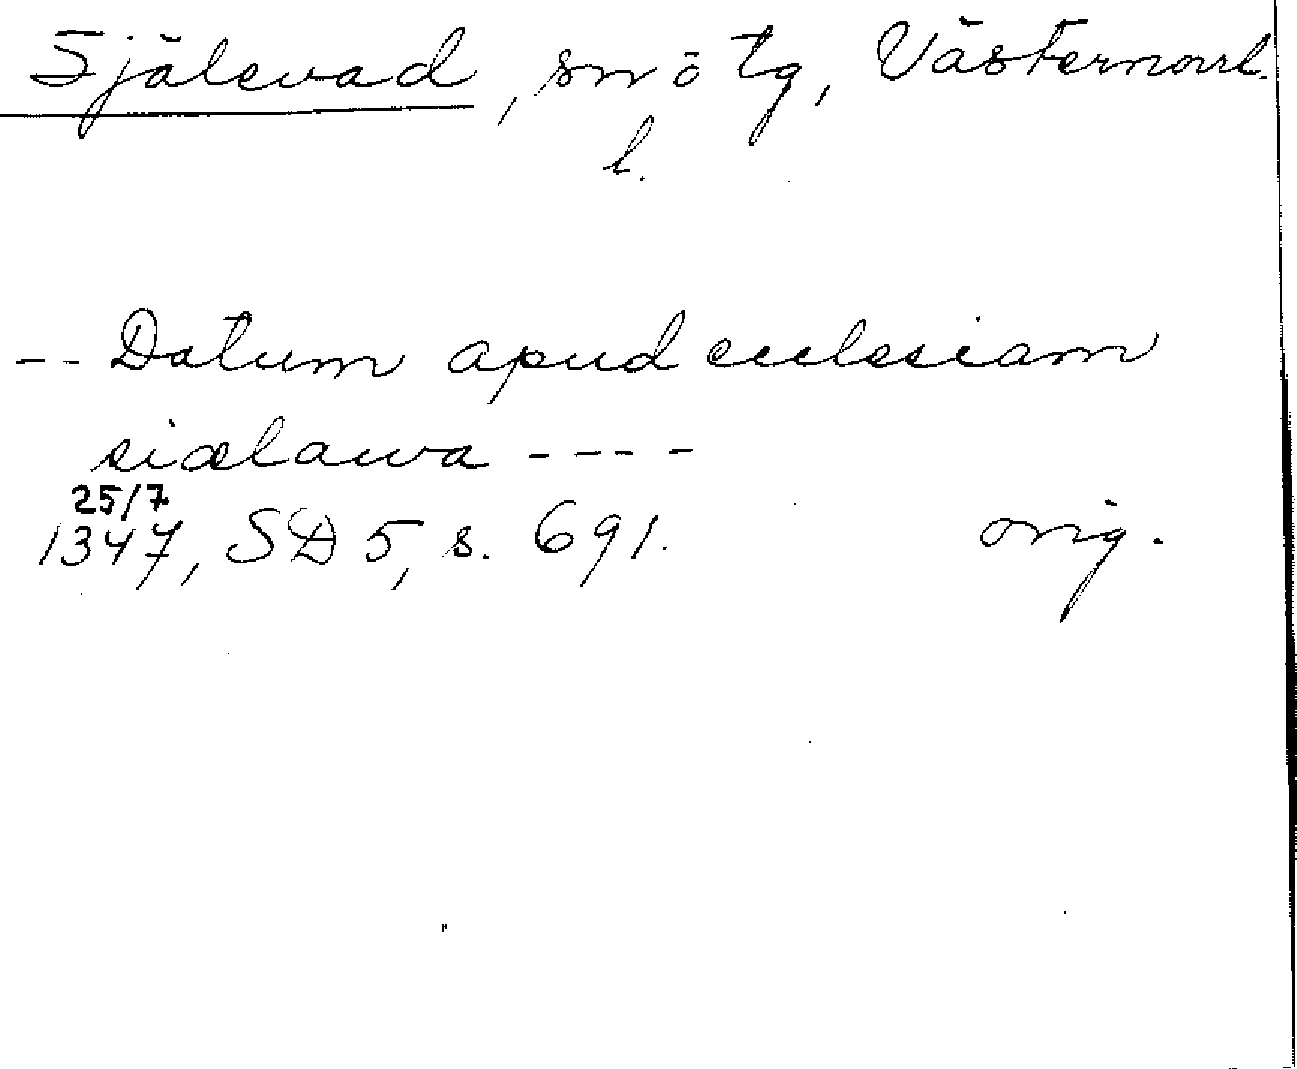 Själevad, sn ō tg, Västernorrl.
l.
-- Datum apud ecclesiam
siælawa ----
25/7
1347, SD 5, s. 691. orig.